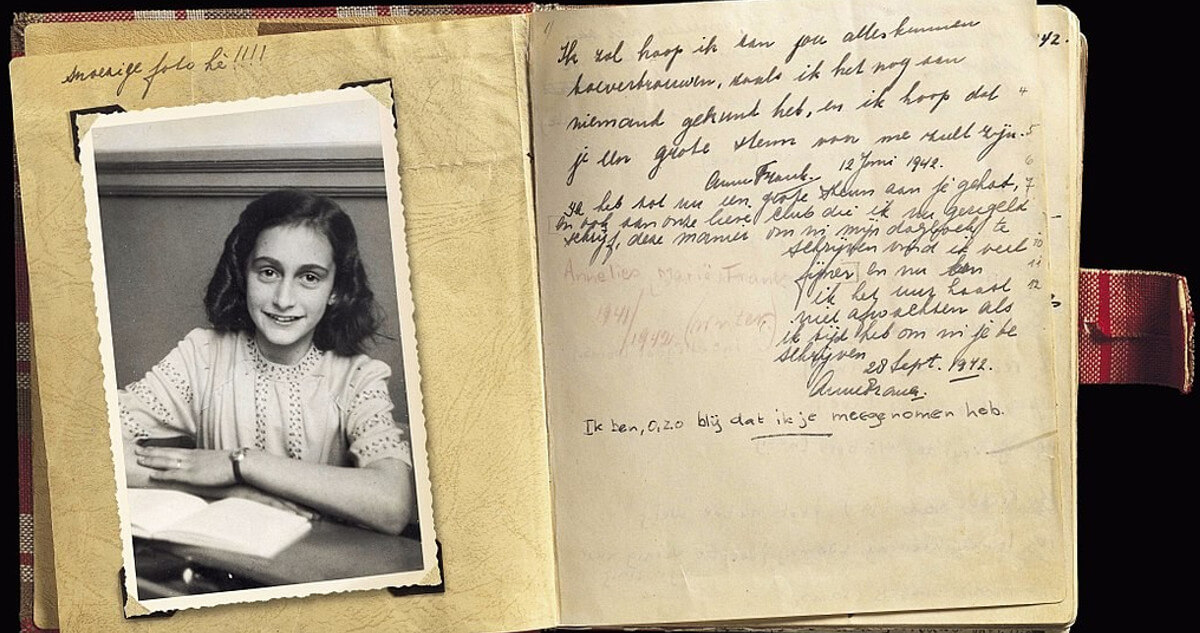 Snoezige foto hè!!!!
42.
Ik zal hoop ik aan jou alles kunnen
toevertrouwen, zoals ik het nog aan
niemand gekund heb, en ik hoop dat
je een grote steun voor me zult zijn.
Anne Frank. 12 Juni 1942.
Ik heb tot nu een grote steun aan je gehad,
en ook aan onze lieve club die ik nu geregeld
schrijf, deze manier om in mijn dagboek te
schrijven vind ik veel
fijner en nu kan
ik het uur haast
niet afwachten als
ik tijd heb om in je te
schrijven
28 Sept. 1942.
Anne Frank.
Annelies, Marie Frank
1941/
/1942
Ik ben, O, zo blij dat ik je meegenomen heb.
4
5
6
7
10
11
12